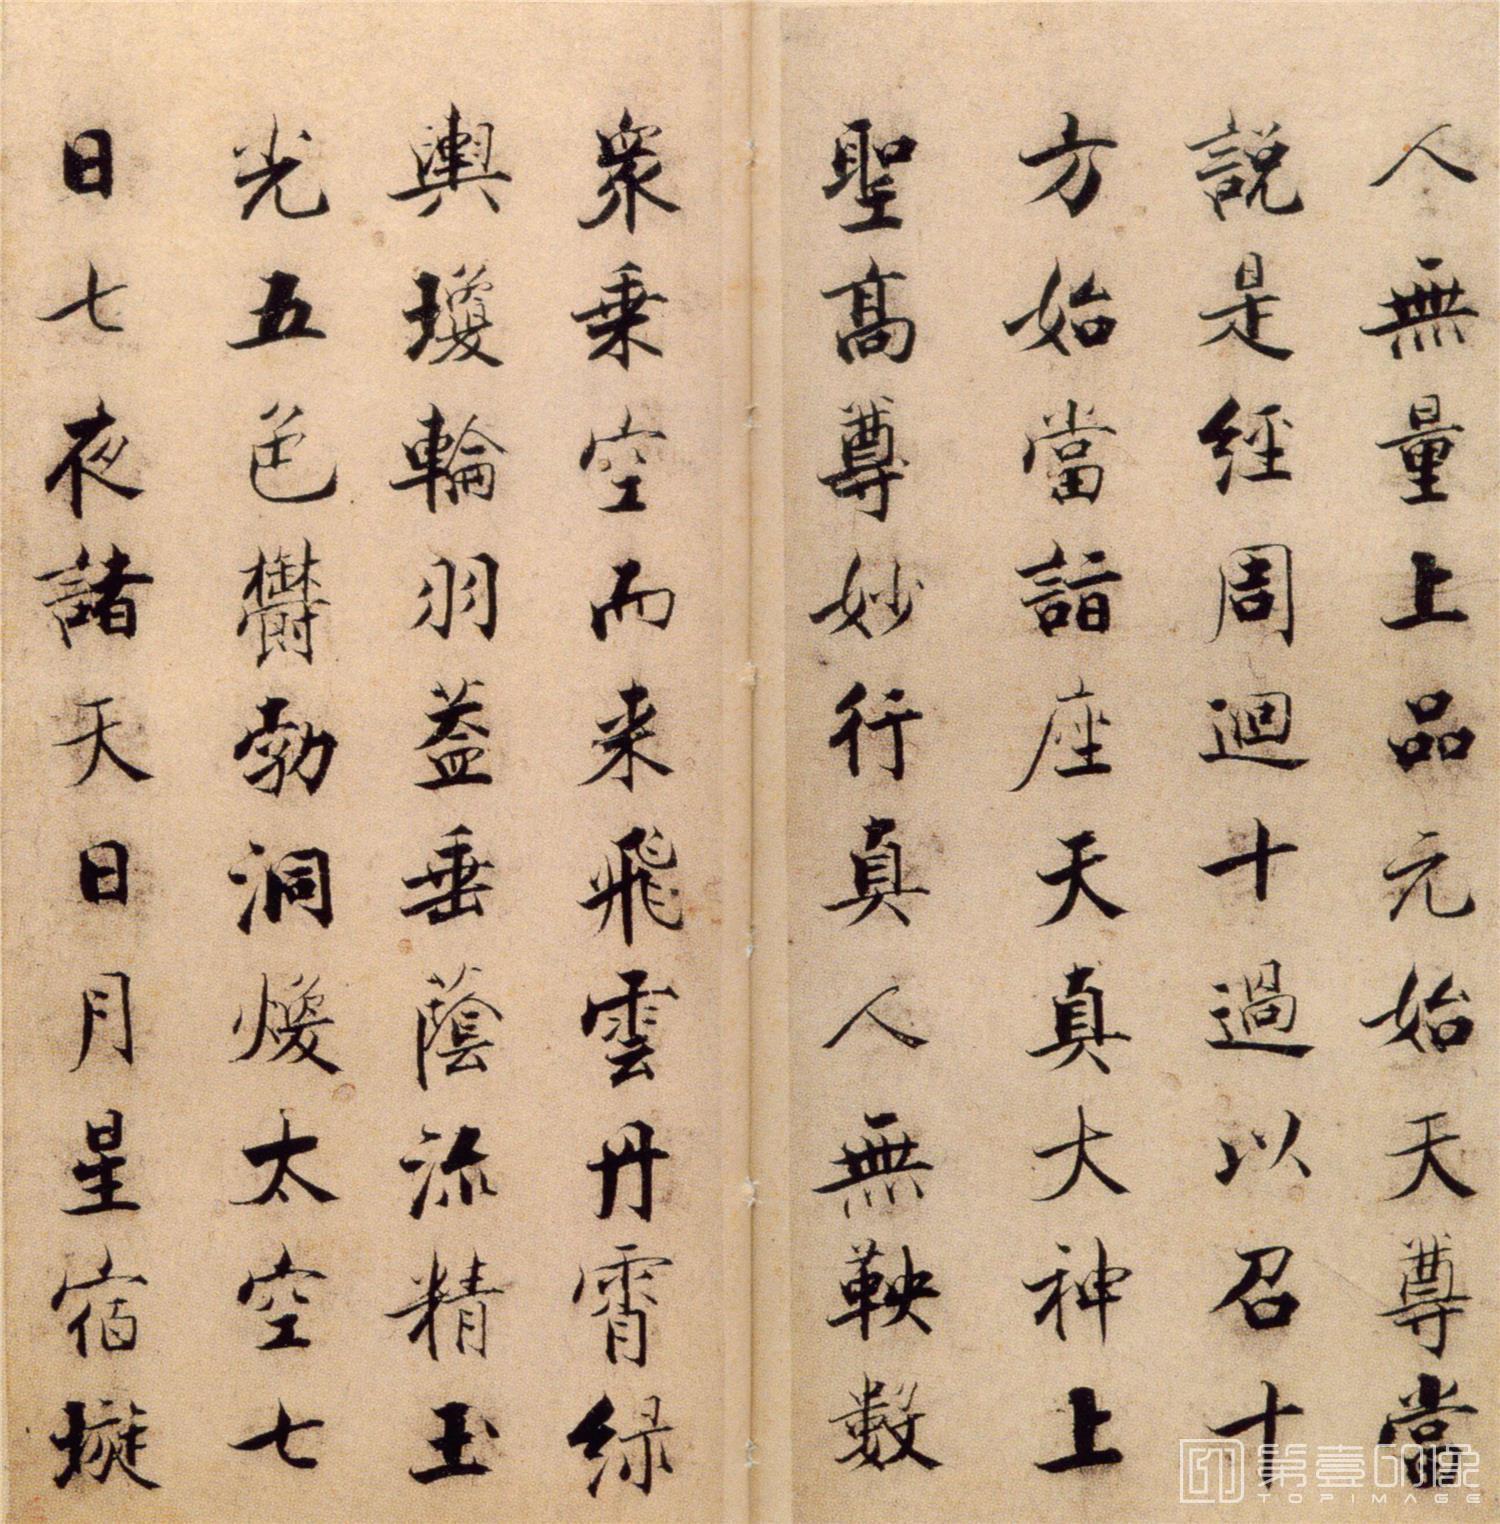 人無量上品元始天尊當
說是經周迴十過以召十
方始當詣座天真大神上
聖高尊妙行真人無鞅數
衆乗空而来飛雲丹霄緑
輿瓊輪羽蓋垂蔭流精玉
光五色欝勃洞煥太空七
日七夜諸天日月星宿璇
第壹印像
TOPIMAGE